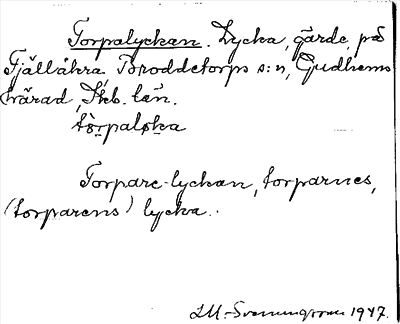 Torpalyckan. Lycka, gärde, på
Fjällåkra Broddetorps s:n, Gudhems
härad, Skb. län.
tòrpaløka
Torpare-lyckan, torparnes,
(torparens) lycka.
1947.